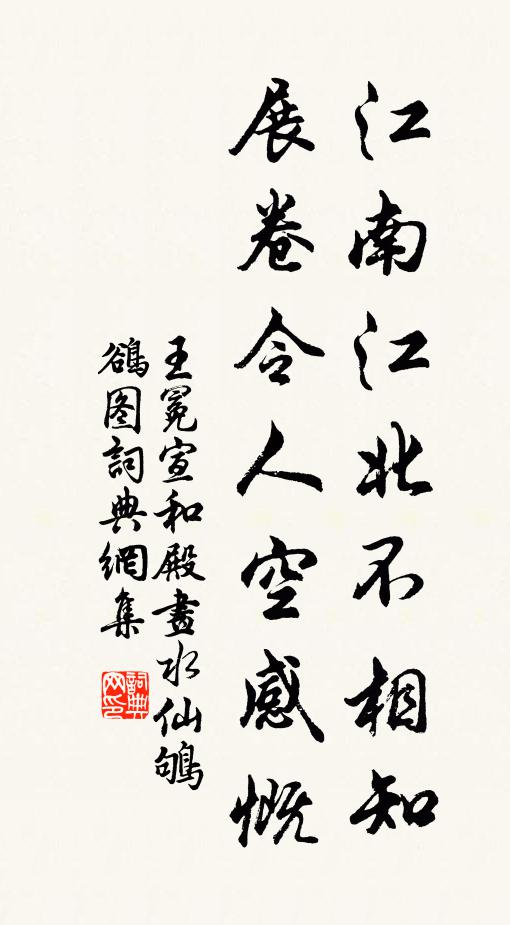 江南江北不相知
展卷令人空感慨
王冕宣和殿畫水仙鴝
鵒图詞典網集
詞典
网印